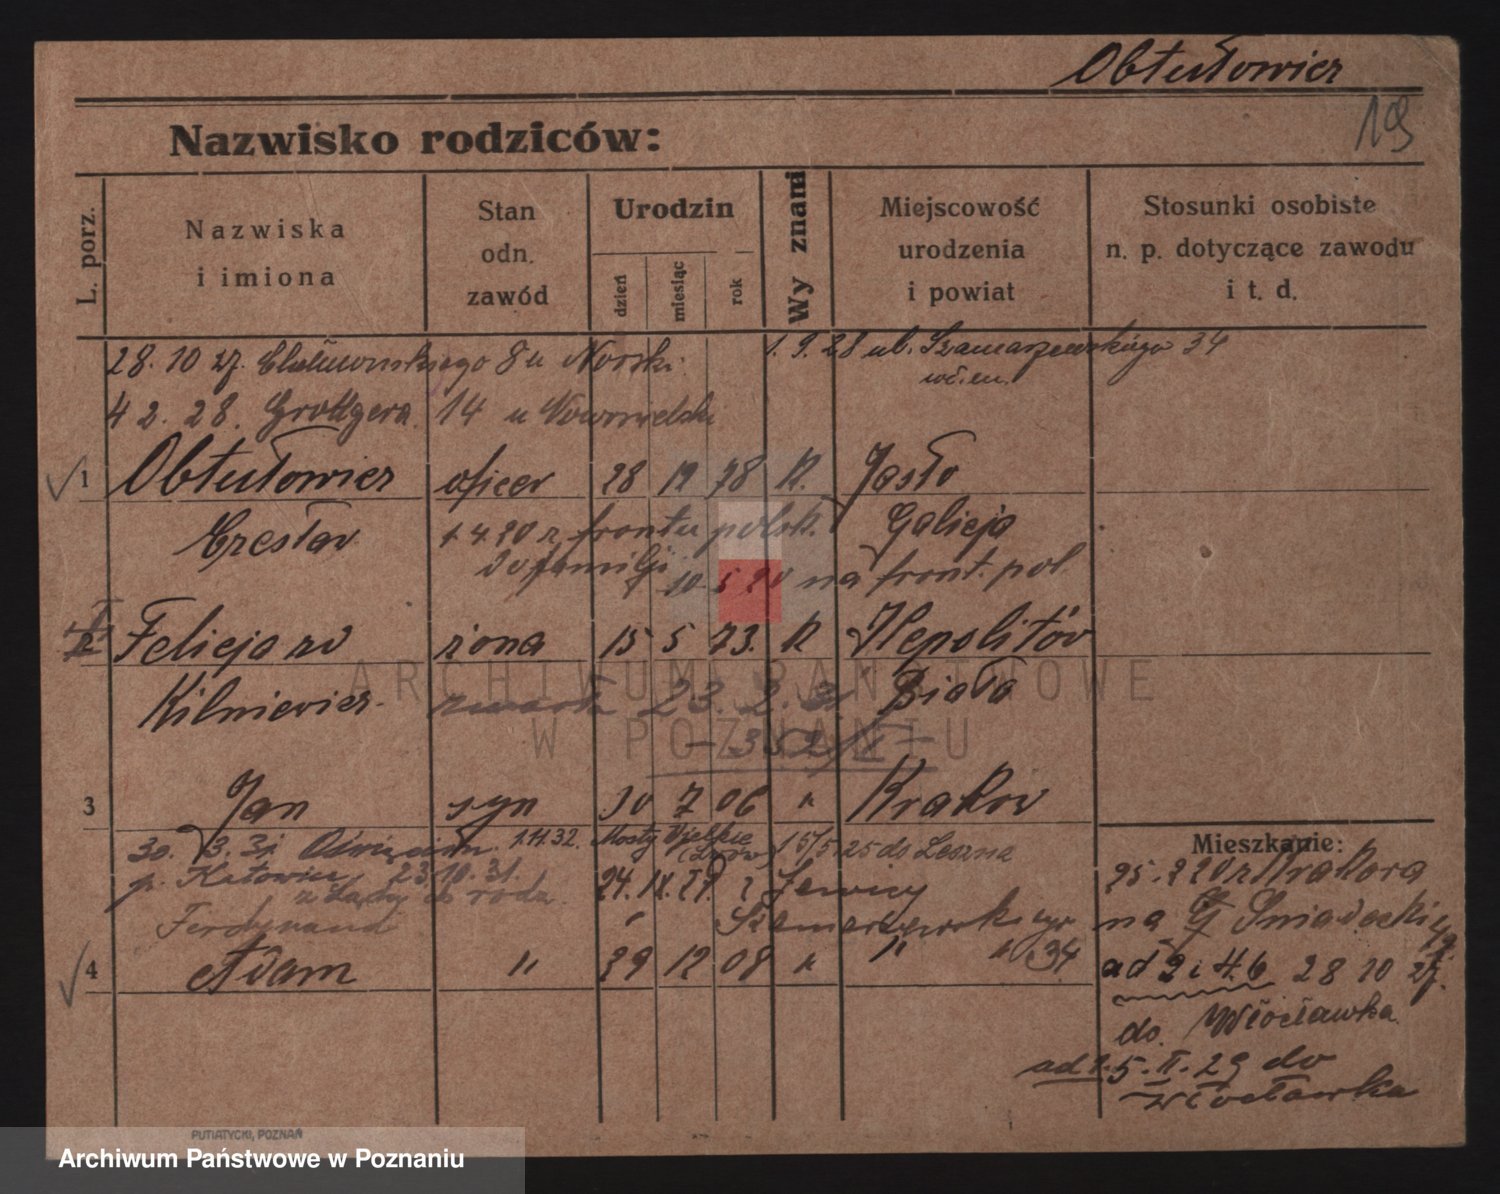 Obtułowicz
19
Nazwisko rodziców:
L. porz.
Nazwiska
i imiona
Stan
odn.
zawód
Urodzin
dzień
miesiąc
rok
Wy znani
Miejscowość
urodzenia
i powiat
Stosunki osobiste
n. p. dotyczące zawodu
i t. d.
28. 10 27. 8 u
1. 9. 28 ul. Szamarzewskiego 34
4 2. 28. Grottgera 14 u
1 Obtułowicz oficer 28 78 K. Jasło
Czesław Galicja
4. 20 z frontu polsk.
do familji 10. 5 20 na front. pol.
2 Felicja żona 15 5 73. K
Kilniewicz Biała
zmarła 23. 2. 31
3 Jan syn 10 7 06 " Kraków
30. 3. 31 Oświęcim. 1.11.32. Mosty Wielkie 15/5.25 do Leszna
(Lwów)
p. Katowice 23.10.31. 24. IX. 27. z
rodz.
Ferdynand Szamarzewskiego
4 Adam " 29 12 08 " " " 34
Mieszkanie:
25. 2 20 z Krakowa
na Śniadeckich
ad 2 i 4. b 28 10 27.
do Włocławka
ad 1. 5. II. 29 do
Włocławka
PUTIATYCKI, POZNAŃ
ARCHIWUM PAŃSTWOWE
W POZNANIU
Archiwum Państwowe w Poznaniu